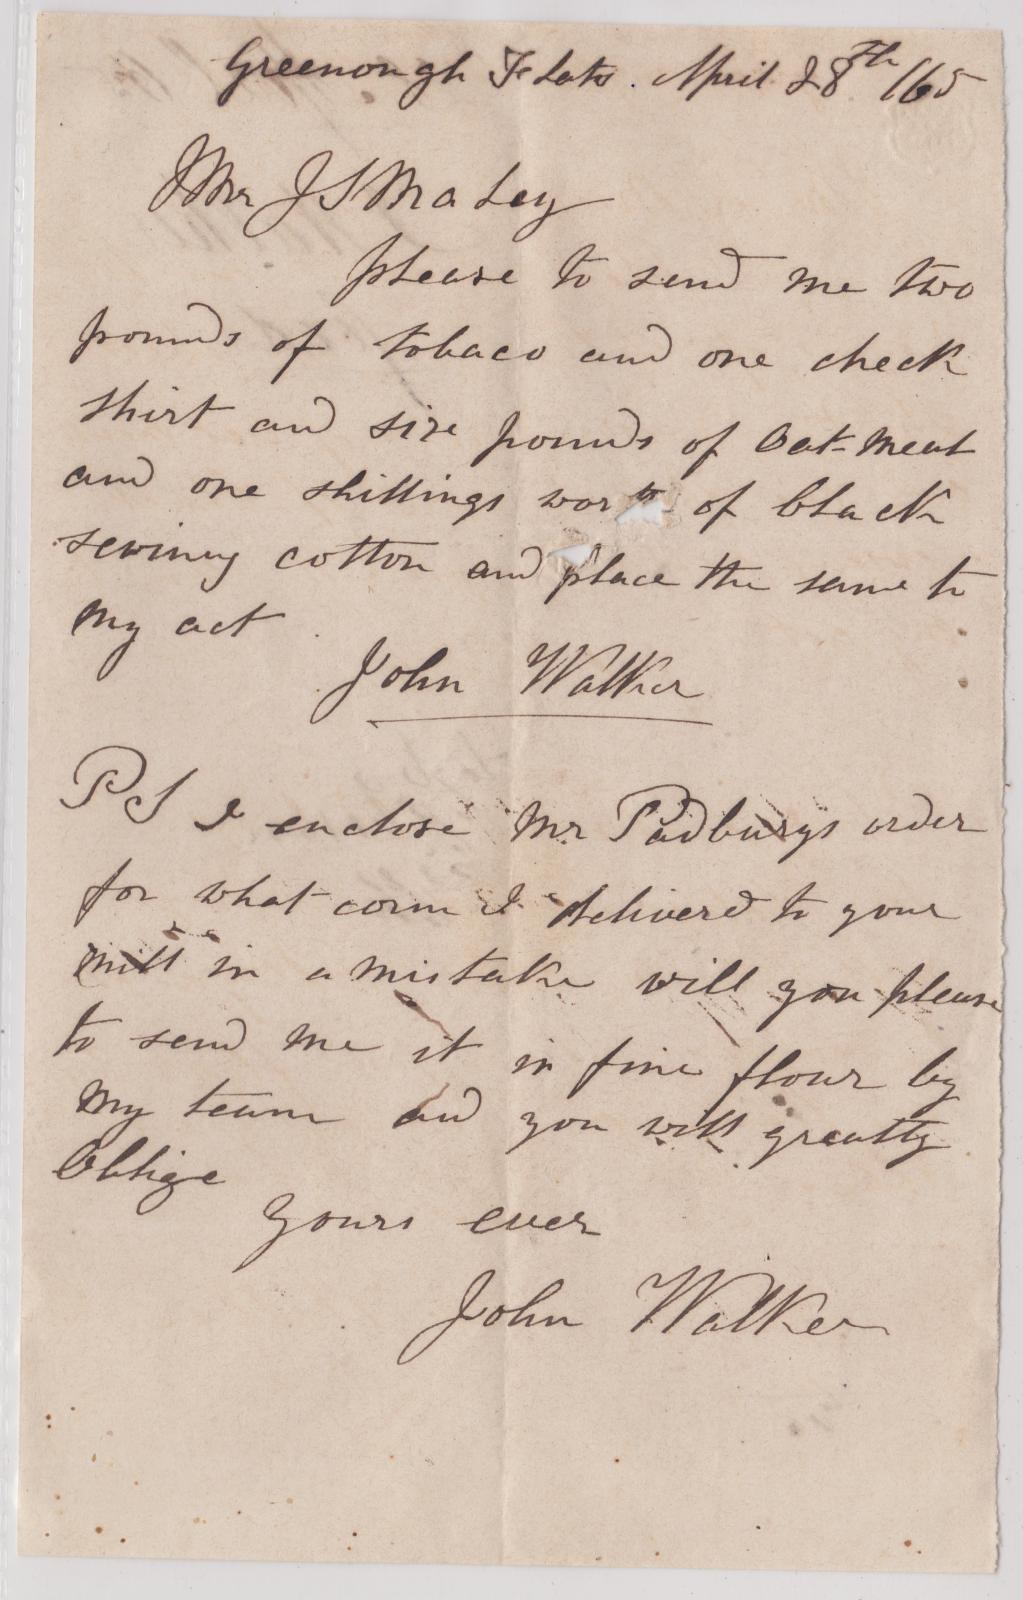 Greenough Flats. April 28th /65
Mr J S Maley
please to send me two
pounds of tobaco and one check
shirt and size pounds of Oat-meal
and one shillings worth of black
sewing cotton and place the same to
my act
John Walker
PS I enclose Mr Padburys order
for what corn I delivered to your
mill in a mistake will you please
to send me it in fine flour by
my team and you will greatly
Oblige
yours ever
John Walker